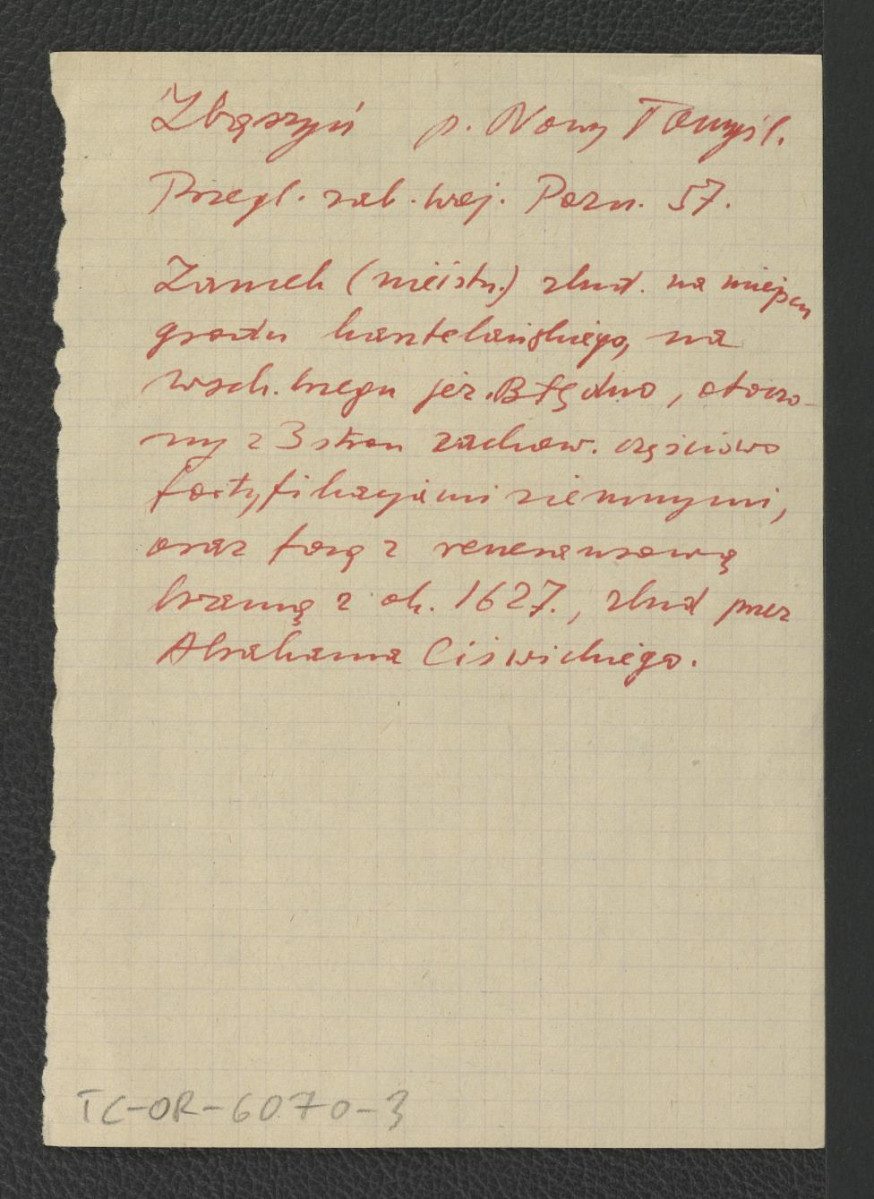 Zbąszyń p. Nowy Tomyśl.
Przegl. zab. woj. Pozn. 57.
Zamek (nieistn.) zbud. na miejscu
grodu kasztelańskiego, na
wsch. brzegu jez. Błędno, otoczo-
ny z 3 stron zachow. częściowo
fortyfikacjami ziemnymi,
oraz fosą z renesansową
bramą z ok. 1627., zbud przez
Abrahama Ciświckiego.
TC-OR-6070-3